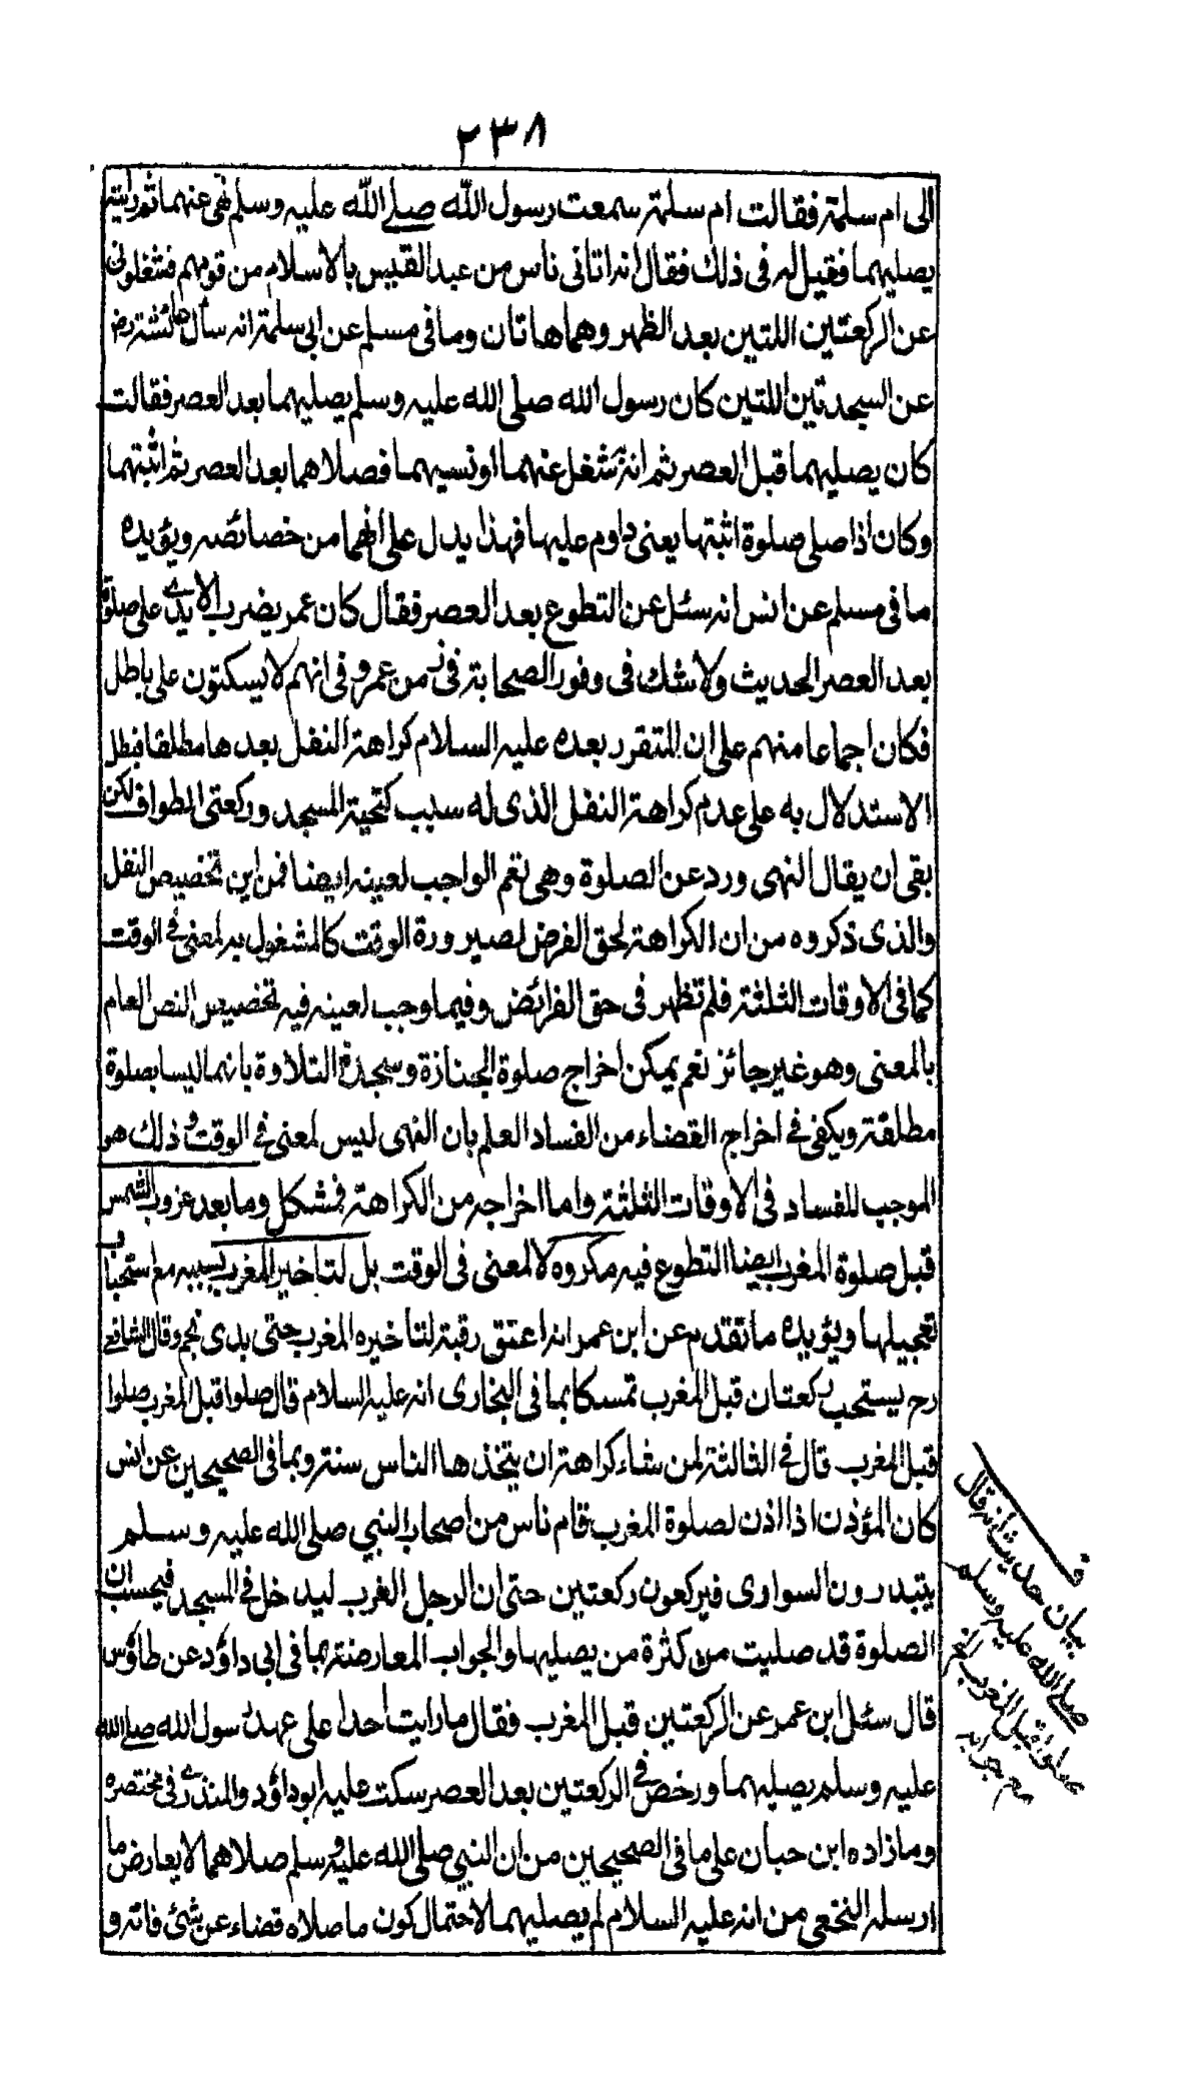 ٢٣٨
الى ام سلمة فقالت ام سلمة سمعت رسول الله صلے الله عليه وسلم نهى عنهما ثم رايته
يصليهما فقيل له فى ذلك فقال انه اتانى ناس من عبد القيس بالاسلام من قومهم فشغلونى
عن الركعتين اللتين بعد الظهر وهما هاتان وما فى مسلم عن ابى سلمة انه سأل عائشة رض
عن السجدتين اللتين كان رسول الله صلى الله عليه وسلم يصليهما بعد العصر فقالت
كان يصليهما قبل العصر ثم انه شغل عنهما او نسيهما فصلاهما بعد العصر ثم اثبتهما
وكان اذا صلى صلوة اثبتها يعنى داوم عليها فهذا يدل على انهما من خصائصه ويؤيده
ما فى مسلم عن انس انه سئل عن التطوع بعد العصر فقال كان عمر يضرب الايدے على صلوة
بعد العصر الحديث ولا شك فى وفور الصحابة فى زمن عمر و فى انهم لا يسكتون على باطل
فكان اجماعا منهم على ان المتقرر بعده عليه السلام كراهة النفل بعدها مطلقا فبطل
الاستدلال به على عدم كراهة النفل الذى له سبب كتحية المسجد وركعتى الطواف لكن
بقى ان يقال النهى ورد عن الصلوة وهى تعم الواجب لعينه ايضا فمن اين تخصيص النفل
والذى ذكروه من ان الكراهة لحق الفرض لصيرورة الوقت كالمشغول به لمعنى فے الوقت
كما فى الاوقات الثلثة فلم تظهر فى حق الفرائض وفيما وجب لعينه فيه تخصيص النص العام
بالمعنى وهو غير جائز نعم يمكن اخراج صلوة الجنازة وسجدة التلاوة بانهما ليسا بصلوة
مطلقة ويكفى فے اخراج القضاء من الفساد العلم بان النهى ليس لمعنى فے الوقت و ذلك هو
الموجب للفساد فى الاوقات الثلثة واما اخراجه من الكراهة فمشكل وما بعد غروب الشمس
قبل صلوة المغرب ايضا التطوع فيه مكروه لا لمعنى فى الوقت بل لتاخير المغرب بسببه مع استحباب
تعجيلها ويؤيده ما تقدم عن ابن عمر انه اعتق رقبة لتاخيره المغرب حتى بدى نجم وقال الشافعے
رح يستحب ركعتان قبل المغرب تمسكا بما فى البخارى انه عليه السلام قال صلوا قبل المغرب صلوا
قبل المغرب قال فے الثالثة لمن شاء كراهة ان يتخذها الناس سنة وبما فى الصحيحين عن انس
كان المؤذن اذا اذن لصلوة المغرب قام ناس من اصحاب النبي صلى الله عليه وسلم
يبتدرون السوارى فيركعون ركعتين حتى ان الرجل الغرب ليدخل فے المسجد فيحسب ان
الصلوة قد صليت من كثرة من يصليها والجواب المعارضة بما فى ابى داؤد عن طاؤس
قال سئل ابن عمر عن الركعتين قبل المغرب فقال ما رايت احدا على عهد رسول الله صلے الله
عليه وسلم يصليهما ورخص فے الركعتين بعد العصر سكت عليه ابو داؤد والمنذرے فى مختصره
وما زاده ابن حبان على ما فى الصحيحين من ان النبي صلى الله عليه وسلم صلاهما لا يعارض ما
ارسله النخعى من انه عليه السلام لم يصليهما لاحتمال كون ما صلاه قضاء عن شئ فاته و
ف
بيان حديث انه قال
صلے الله عليه وسلم
صلوا قبل المغرب الخ
مع جوابه